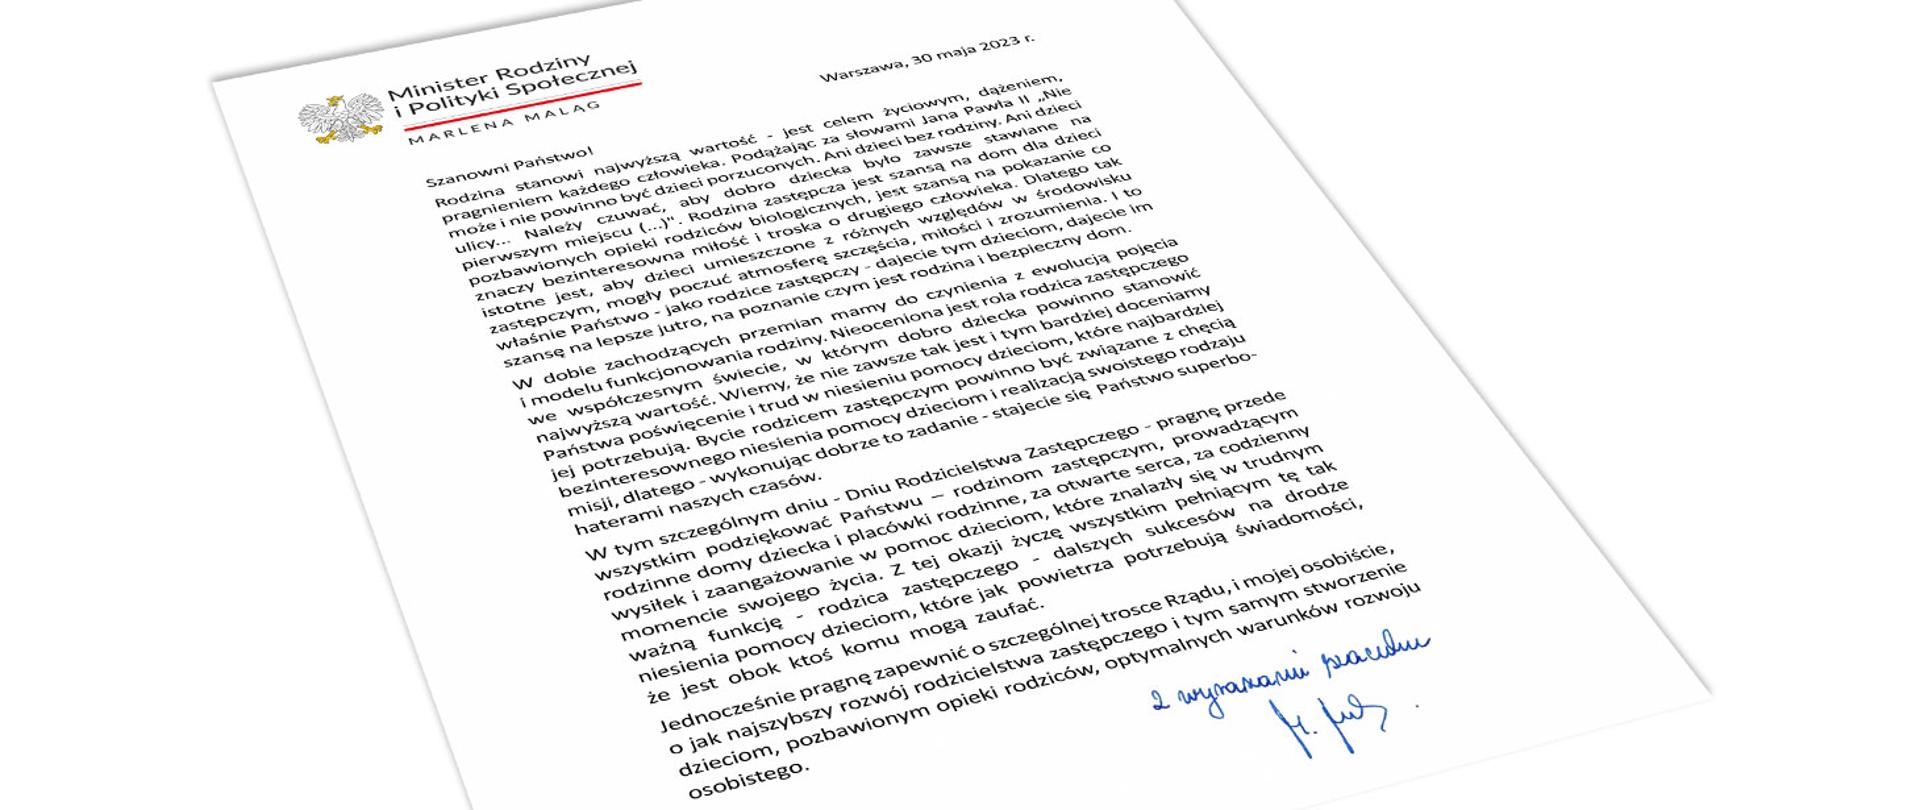 Minister Rodziny
i Polityki Społecznej
MARLENA MALĄG
Warszawa, 30 maja 2023 r.
Szanowni Państwo!
Rodzina stanowi najwyższą wartość - jest celem życiowym, dążeniem,
pragnieniem każdego człowieka. Podążając za słowami Jana Pawła II „Nie
może i nie powinno być dzieci porzuconych. Ani dzieci bez rodziny. Ani dzieci
ulicy... Należy czuwać, aby dobro dziecka było zawsze stawiane na
pierwszym miejscu (...)". Rodzina zastępcza jest szansą na dom dla dzieci
pozbawionych opieki rodziców biologicznych, jest szansą na pokazanie co
znaczy bezinteresowna miłość i troska o drugiego człowieka. Dlatego tak
istotne jest, aby dzieci umieszczone z różnych względów w środowisku
zastępczym, mogły poczuć atmosferę szczęścia, miłości i zrozumienia. I to
właśnie Państwo - jako rodzice zastępczy - dajecie tym dzieciom, dajecie im
szansę na lepsze jutro, na poznanie czym jest rodzina i bezpieczny dom.
W dobie zachodzących przemian mamy do czynienia z ewolucją pojęcia
i modelu funkcjonowania rodziny. Nieoceniona jest rola rodzica zastępczego
we współczesnym świecie, w którym dobro dziecka powinno stanowić
najwyższą wartość. Wiemy, że nie zawsze tak jest i tym bardziej doceniamy
Państwa poświęcenie i trud w niesieniu pomocy dzieciom, które najbardziej
jej potrzebują. Bycie rodzicem zastępczym powinno być związane z chęcią
bezinteresownego niesienia pomocy dzieciom i realizacją swoistego rodzaju
misji, dlatego - wykonując dobrze to zadanie - stajecie się Państwo superbo-
haterami naszych czasów.
W tym szczególnym dniu - Dniu Rodzicielstwa Zastępczego - pragnę przede
wszystkim podziękować Państwu – rodzinom zastępczym, prowadzącym
rodzinne domy dziecka i placówki rodzinne, za otwarte serca, za codzienny
wysiłek i zaangażowanie w pomoc dzieciom, które znalazły się w trudnym
momencie swojego życia. Z tej okazji życzę wszystkim pełniącym tę tak
ważną funkcję - rodzica zastępczego - dalszych sukcesów na drodze
niesienia pomocy dzieciom, które jak powietrza potrzebują świadomości,
że jest obok ktoś komu mogą zaufać.
Jednocześnie pragnę zapewnić o szczególnej trosce Rządu, i mojej osobiście,
o jak najszybszy rozwój rodzicielstwa zastępczego i tym samym stworzenie
dzieciom, pozbawionym opieki rodziców, optymalnych warunków rozwoju
osobistego.
Z wyrazami szacunku